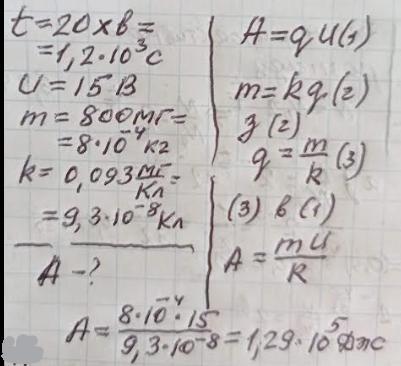 t = 20 хв =
= 1,2·10³ с
U = 15 В
m = 800 мг =
= 8·10⁻⁴ кг
k = 0,093 мг/Кл =
= 9,3·10⁻⁸ Кл
A - ?
A = qU (1)
m = kq (2)
з (2)
q = m/k (3)
(3) в (1)
A = mU/k
A = 8·10⁻⁴·15/9,3·10⁻⁸ = 1,29·10⁵ Дж